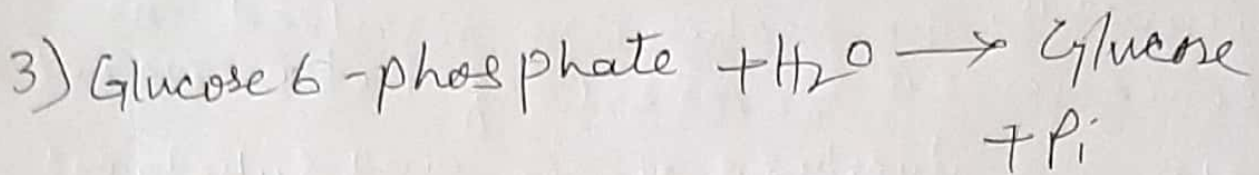 3) Glucose 6-phosphate + H₂O → Glucose
+ Pi